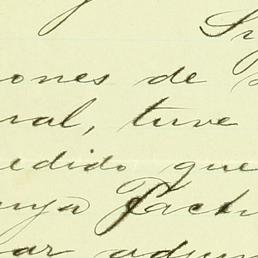 ones de
ral, tuve
edido que
uya Factu
ar adjun